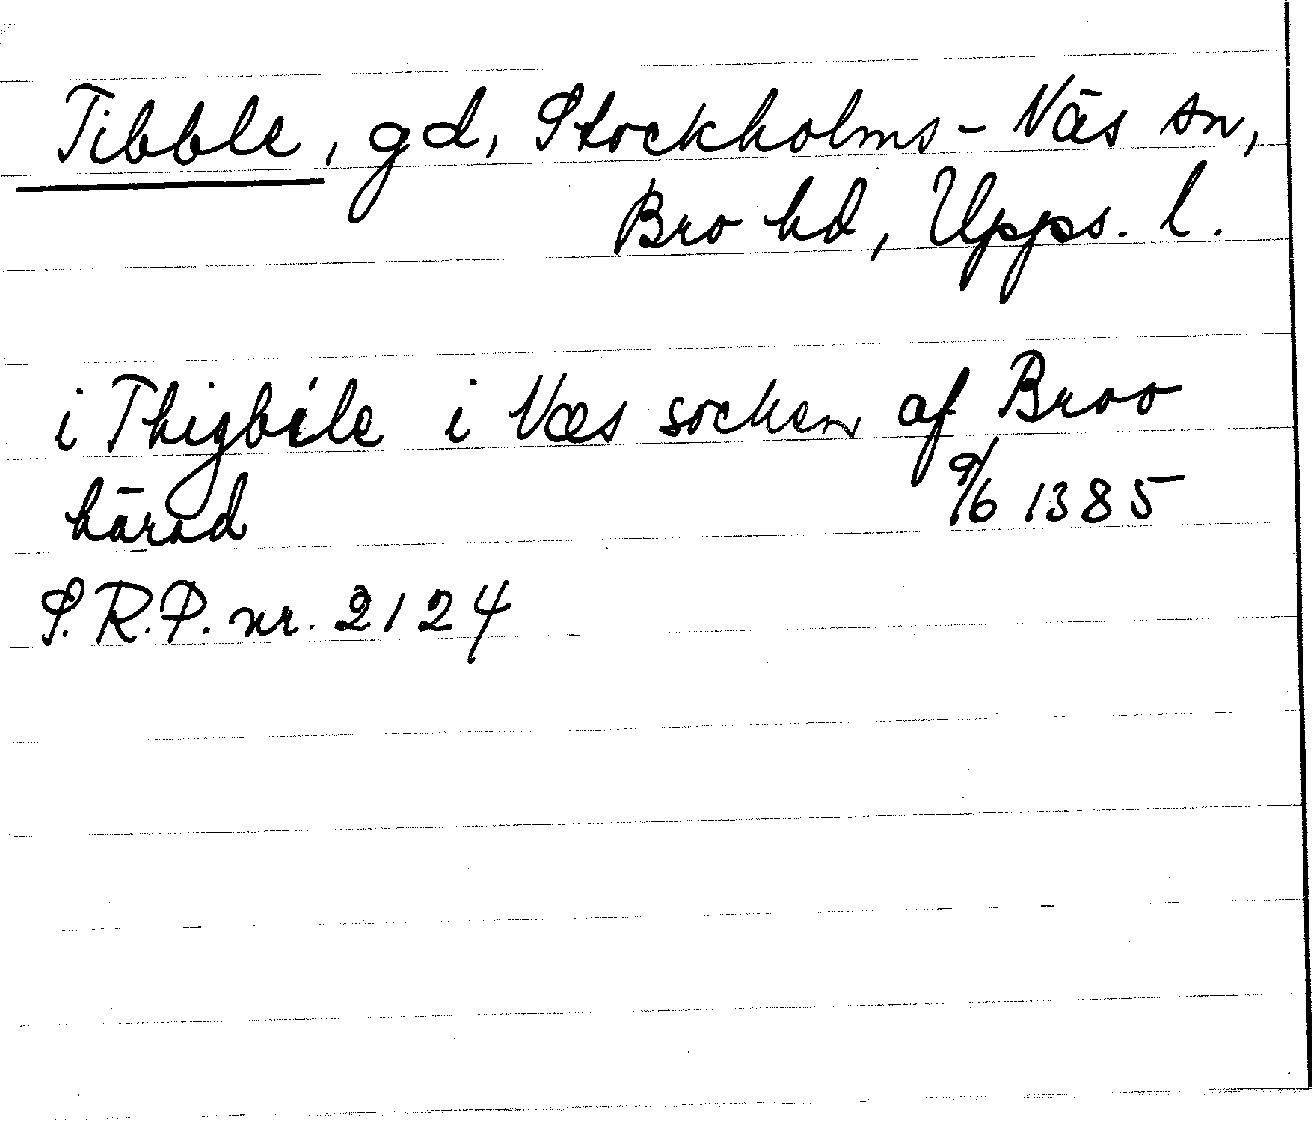 Tibble, gd, Stockholms-Näs sn,
Bro hd, Upps. l.
i Thigbile i Næs socken af Broo
härad 9/6 1385
S.R.P. nr. 2124